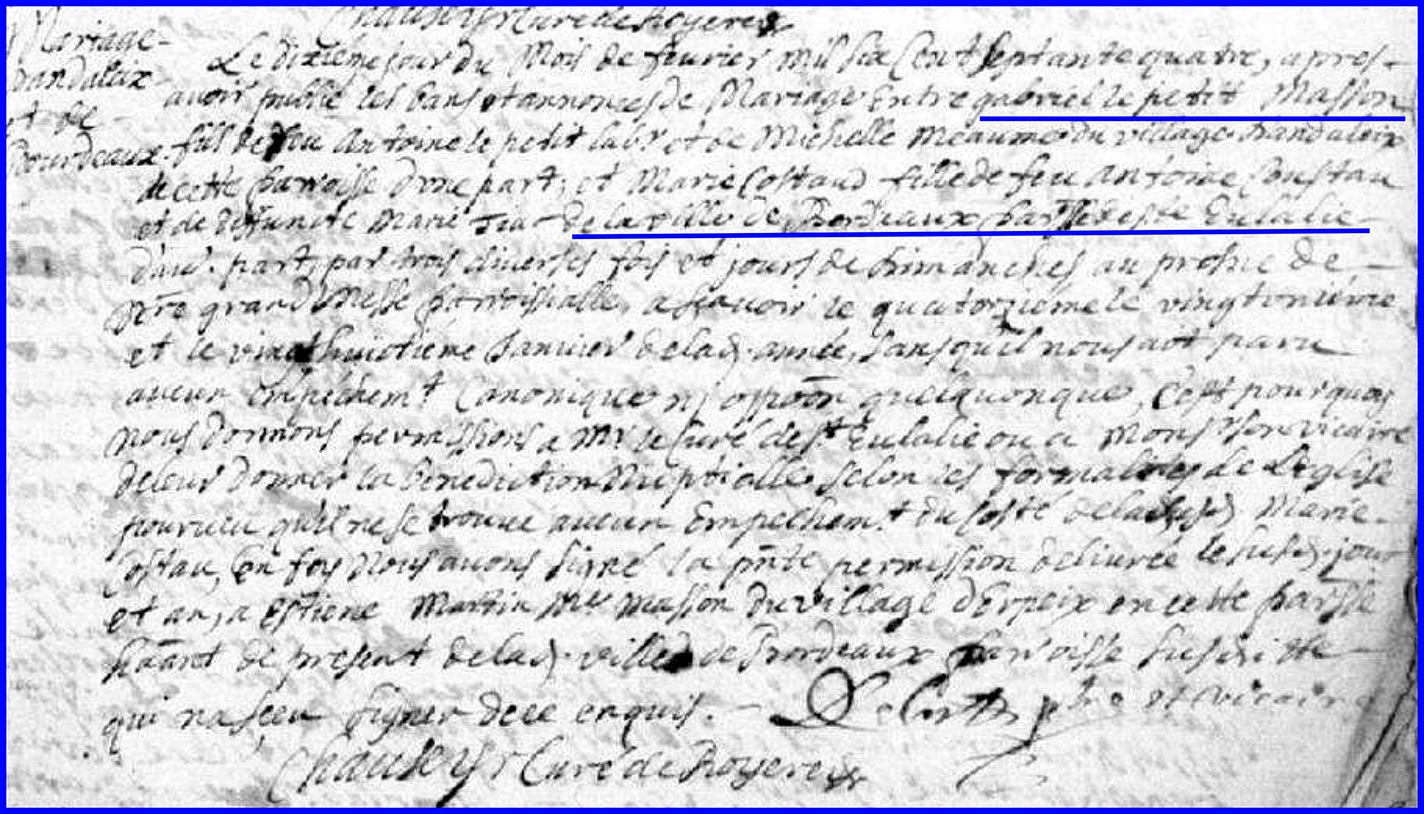 Chaussijs Curé de Royeres
Mariage
dandaleix
et de
Bourdeaux
Le dixieme jour du Mois de feurier mil six Cent septante quatre, apres
auoir publié les bans et annonces de Mariage Entre gabriel le petit Masson
fils de feu Antoine le petit labr et de Michelle Meaume du village dandaleix
de cette parroisse dune part, et Marie Costaud fille de feu Antoine Coustau
et de deffuncte Marie de la ville de Bordeaux parsse de ste Eulalie
daut. part, par trois diuerses fois et jours de dimanches au prosne de
nre grand Messe parroissialle, a scauoir le quatorzieme le vingtunieme
et le vingthuictieme Januier de lad. année, sans quil nous aöt paru
aucun Empechemt Canonique nj oppoön quelquonque, C'est pourquoy
nous donnons permissions a Mr le Curé de st Eulalie ou a Monsr son vicaire
de leur donner la benediction Nuptialle selon les formalités de L'eglise
pourueu quil ne se trouue aucun Empechem.t du costé de lad. Marie
Costau, En foy Nous auons signé la pnte permission deliurée le susd. jour
et an, a Estiene Martin Mtre Masson du village d'Erpeix en cette parsse
hãant de present de lad. ville de Bordeaux parroisse susditte
qui na sceu signer de ce enquis. pbre et vicaire
Chaussijs Curé de Royeres